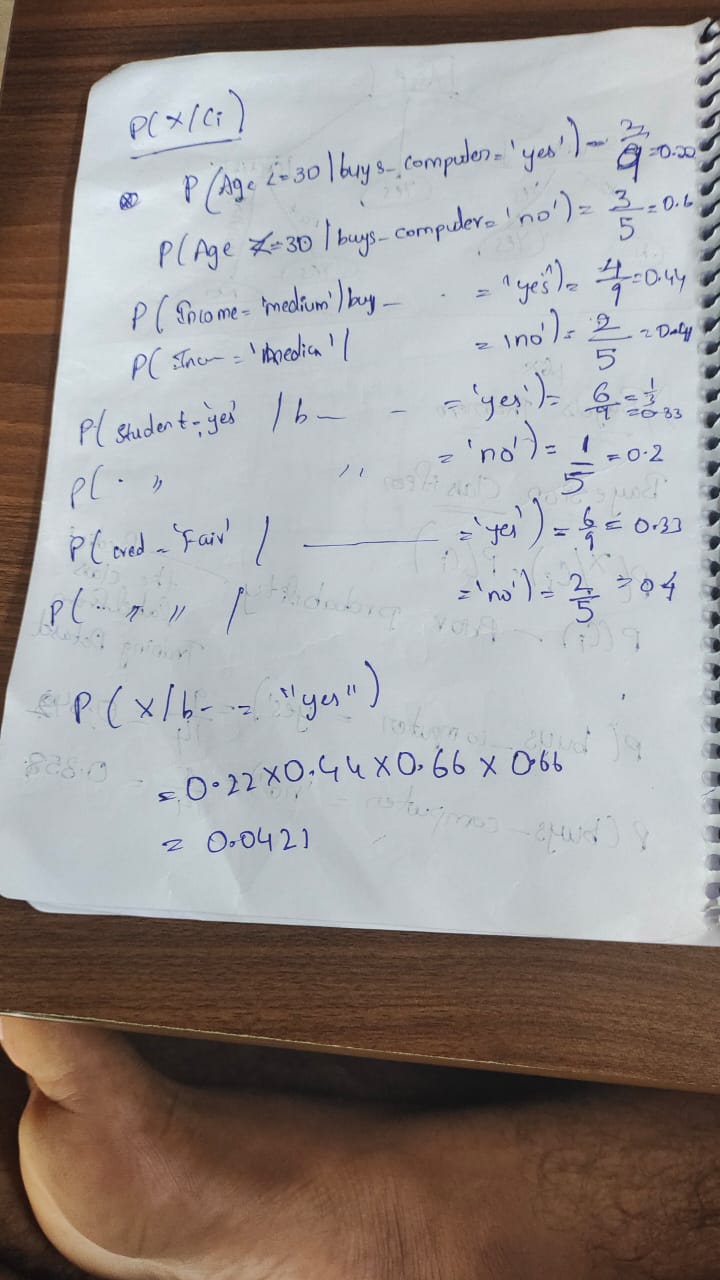 P(X/Ci)
P(Age <=30 | buys-computer='yes') = 2/9 = 0.22
P(Age <=30 | buys-computer='no') = 3/5 = 0.6
P(Income = 'medium') buy - . = "yes") = 4/9 = 0.44
P( Incom = 'medica' | = 'no') = 2/5 =
P( Student = 'yes' / b - - = 'yes') = 6/9 = 1/3 = 0.33
P( . " " = 'no') = 1/5 = 0.2
P( cred = 'Fair' / = 'yes') = 6/9 = 0.33
P( " " / = 'no') = 2/5 = 0.4
P ( X/b- - = "yes")
= 0.22 X 0.44 X 0.66 X 0.66
= 0.0421